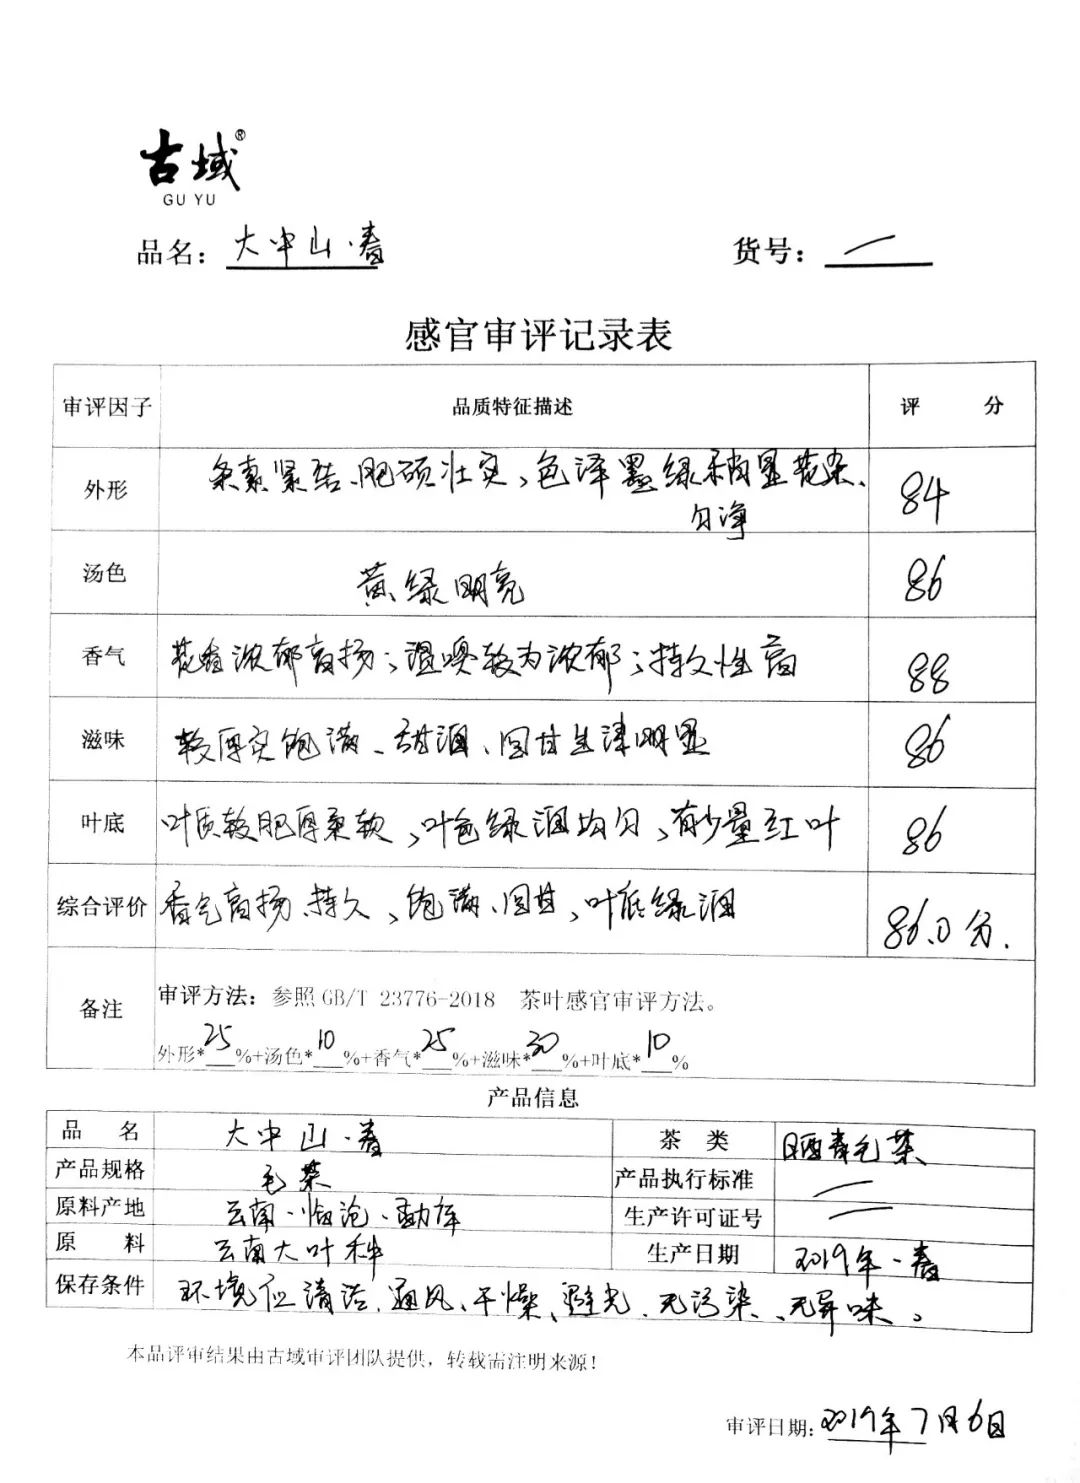 古域®
GU YU
品名：大中山·春 货号：一
感官审评记录表
审评因子 品质特征描述 评 分
外形 条索紧结、肥硕壮实，色泽墨绿稍显花杂、 84
匀净
汤色 黄绿明亮 86
香气 花香浓郁高扬；温嗅较为浓郁；持久性高 88
滋味 较厚实饱满、甜润、回甘生津明显 86
叶底 叶质较肥厚柔软，叶色绿润均匀，有少量红叶 86
综合评价 香气高扬、持久，饱满、回甘，叶底绿润 86.0分.
备注 审评方法：参照 GB/T 23776-2018 茶叶感官审评方法。
外形*25%+汤色*10%+香气*25%+滋味*30%+叶底*10%
产品信息
品 名 大中山·春 茶 类 晒青毛茶
产品规格 毛茶 产品执行标准 一
原料产地 云南·临沧·勐库 生产许可证号 一
原 料 云南大叶种 生产日期 2019年·春
保存条件 环境应清洁、通风、干燥、避光、无污染、无异味。
本品评审结果由古域审评团队提供，转载需注明来源！
审评日期：2019年7月6日